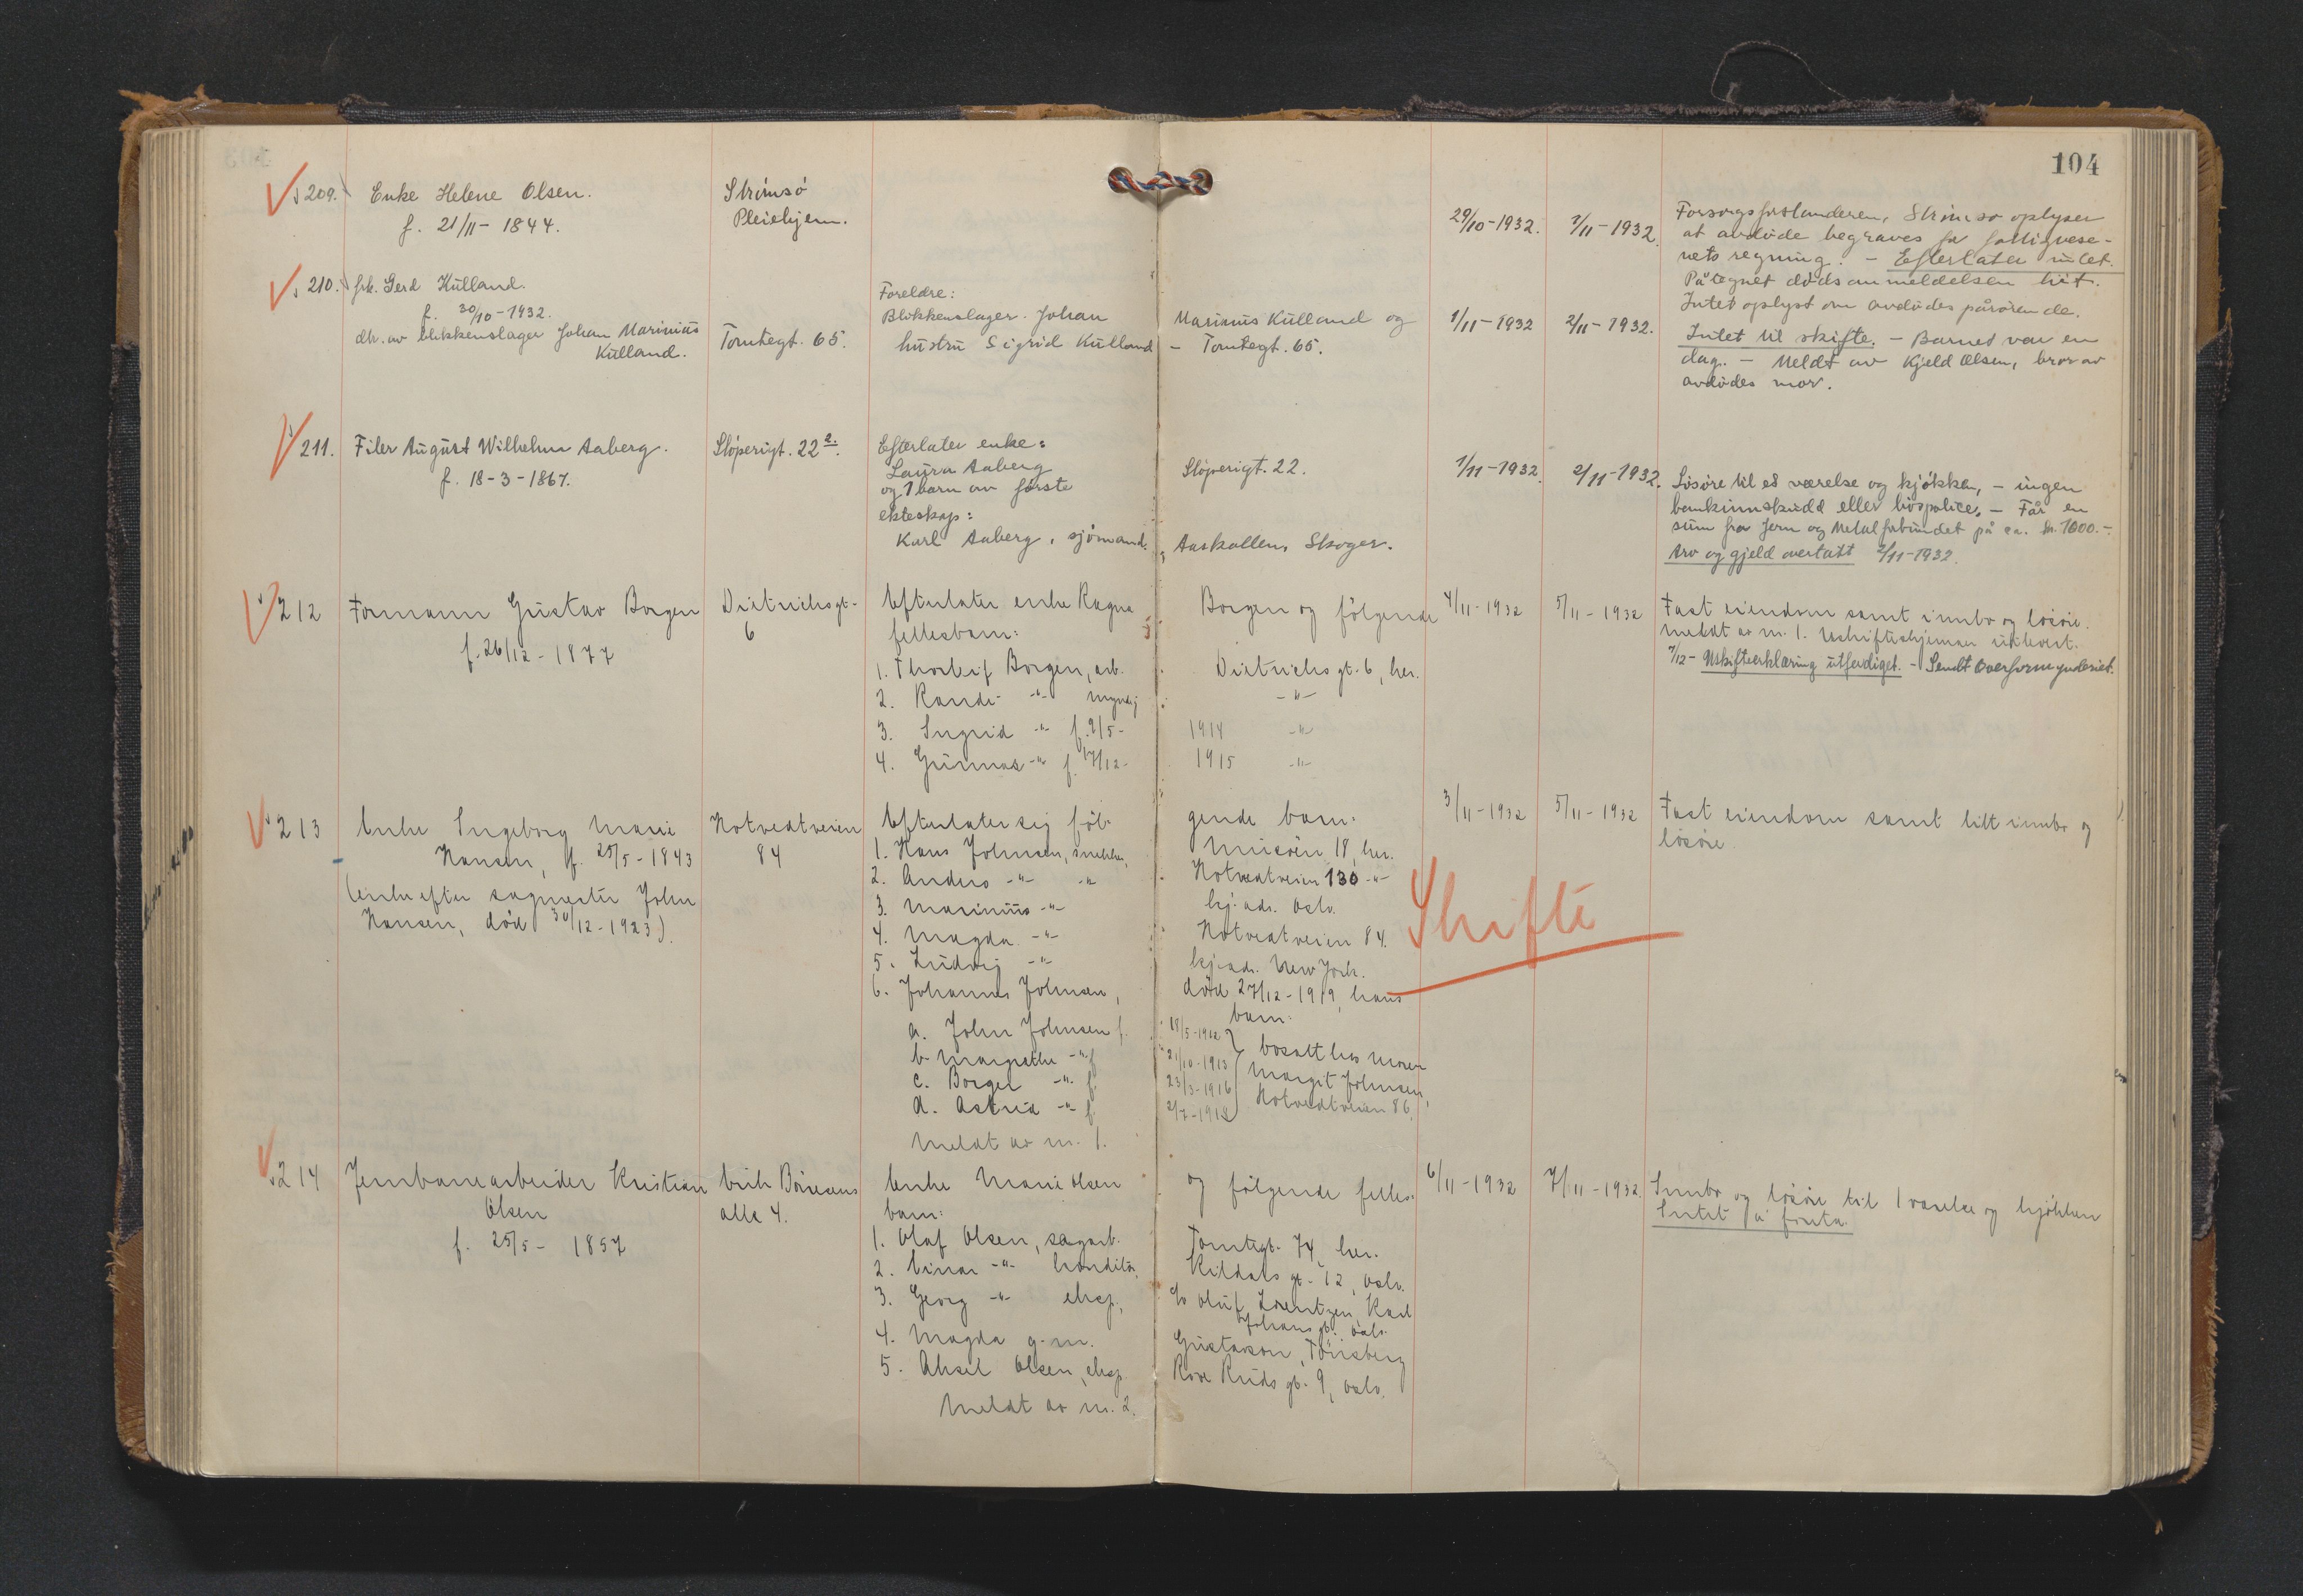 104
209. Enke Helene Olsen.
f. 21/11 - 1844.
Strømsø
Pleiehjem.
29/10-1932.
1/11-1932.
Forsorgsforstanderen, Strømsø oplyser
at avdøde begraves for fattigvese-
nets regning. - Efterlater intet.
Påtegnet dødsanmeldelsen hit.
Intet oplyst om avdødes pårørende.
210. frk. Gerd Kulland.
f. 30/10-1932.
dtr. av blikkenslager Johan Marinius
Kulland.
Tomtegt. 65.
Foreldre:
Blikkenslager Johan Marinius Kulland og
hustru Sigrid Kulland - Tomtegt. 65.
1/11-1932
2/11-1932.
Intet til skifte. - Barnet var en
dag. - Meldt av Kjeld Olsen, bror av
avdødes mor.
211. Filer August Wilhelm Aaberg.
f. 18-3-1867.
Støperigt. 22 2.
Efterlater enke:
Laura Aaberg Støperigt. 22.
og 1 barn av første
ekteskap:
Karl Aaberg, sjømand, Aaskollen, Skoger.
1/11-1932.
2/11-1932.
Løsøre til ed værelse og kjøkken, - ingen
bankinnskudd eller livspolice. - Får en
sum fra Jern og Metalforbundet på ca. kr. 1000.-
Arv og gjeld overtatt 2/11-1932.
212 Formann Gustav Borgen
f. 26/12-1877
Dietrichsgt.
6
Efterlater enke Ragna Borgen og følgende
fellesbarn:
1. Thorleif Borgen, arb. Dietrichsgt. 6, her.
2. Randi -"- myndig -"-
3. Ingrid -"- f. 2/5- 1914 -"-
4. Gunnar -"- f. 17/12- 1915 -"-
4/11-1932
5/11-1932
Fast eiendom samt innbo og løsøre.
Meldt av nr. 1. Uskifteskjemaer utlevert.
7/12- Uskifteerklæring utferdiget. - Sendt Overformynderiet.
213 Enke Ingeborg Marie
Hansen, f. 25/5-1843
(enke efter sagmester John
Hansen, død 30/12-1923).
Hotvedtveien
84
Efterlater sig følgende barn:
1. Hans Johnsen, snekker, Muséen 18, her.
2. Anders -"- -"- Hotvedtveien 130 -"-
3. Marinius -"- kj. adr. Oslo.
4. Magda -"- Hotvedtveien 84.
5. Ludvig -"- kj. adr. New York.
6. Johannes Johnsen, død 27/12-1919, hans
barn:
a. John Johnsen f. 18/5-1912
b. Margrethe -"- f. 21/10-1913
c. Borger -"- f. 23/3-1916
d. Astrid -"- f. 2/7-1918
bosatt hos moren
Margit Johnsen,
Hotvedtveien 86.
Meldt av nr. 1.
3/11-1932
5/11-1932
Fast eiendom samt litt innbo og
løsøre.
Skifte
214 Jernbanearbeider Kristian
Olsen
f. 25/5- 1857
Erik Børresens
alle 4.
Enke Marie Olsen og følgende felles-
barn:
1. Olaf Olsen, sagarb. Tomtegt. 74, her.
2. Einar -"- konditor, Kildals gt. 12, Oslo.
3. Georg -"- eksp., c/o Oluf Lorentzen, Karl
Johans gt. Oslo.
4. Magda g.m. Gustavson, Tønsberg
5. Aksel Olsen, eksp. Rose Ruds gt. 9, Oslo.
Meldt av nr. 2.
6/11-1932
7/11-1932.
Innbo og løsøre til 1 værelse og kjøkken
Intet å foreta.